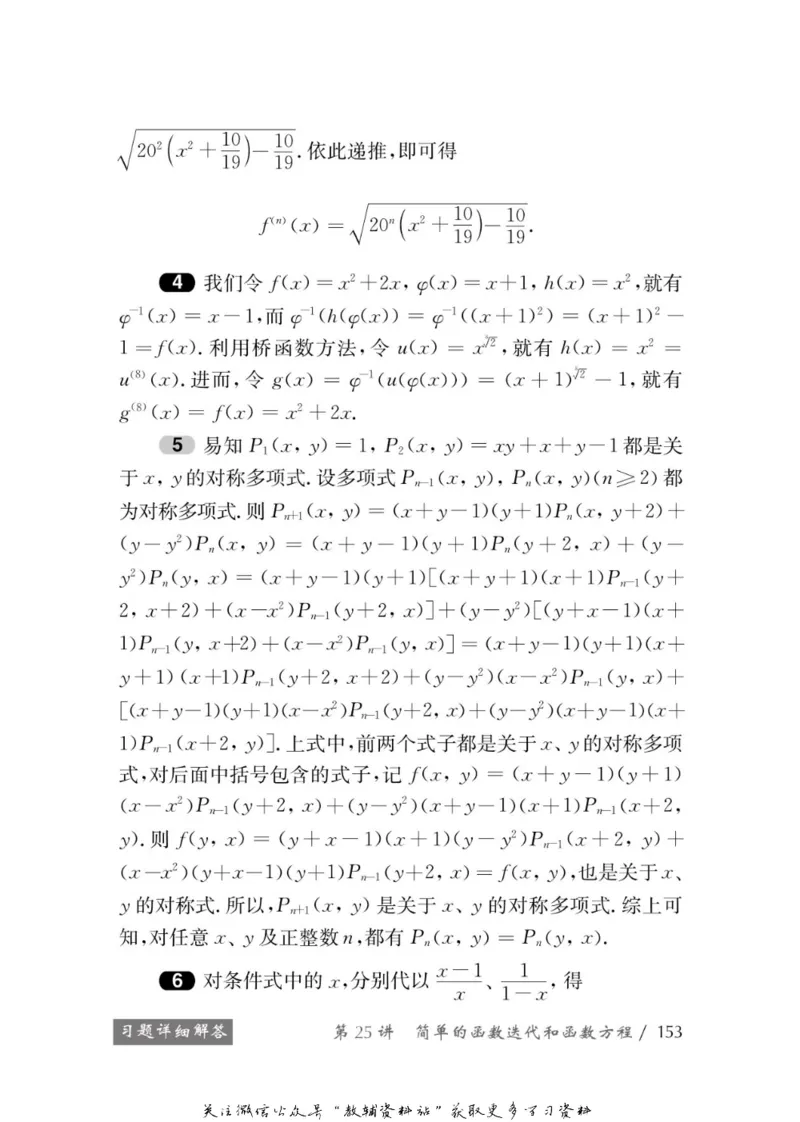 √(20²(x²+10/19)-10/19).依此递推,即可得
f⁽ⁿ⁾(x)=√(20ⁿ(x²+10/19)-10/19).
4 我们令 f(x)=x²+2x, φ(x)=x+1, h(x)=x²,就有
φ⁻¹(x)=x-1,而 φ⁻¹(h(φ(x))=φ⁻¹((x+1)²)=(x+1)²-
1=f(x).利用桥函数方法,令 u(x)=x^(⁸√2),就有 h(x)=x²=
u⁽⁸⁾(x).进而,令 g(x)=φ⁻¹(u(φ(x)))=(x+1)^(⁸√2)-1,就有
g⁽⁸⁾(x)=f(x)=x²+2x.
5 易知 P₁(x, y)=1, P₂(x, y)=xy+x+y-1都是关
于 x, y的对称多项式.设多项式Pₙ₋₁(x, y), Pₙ(x, y)(n≥2)都
为对称多项式.则 Pₙ₊₁(x, y)=(x+y-1)(y+1)Pₙ(x, y+2)+
(y-y²)Pₙ(x, y)=(x+y-1)(y+1)Pₙ(y+2, x)+(y-
y²)Pₙ(y, x)=(x+y-1)(y+1)[(x+y+1)(x+1)Pₙ₋₁(y+
2, x+2)+(x-x²)Pₙ₋₁(y+2, x)]+(y-y²)[(y+x-1)(x+
1)Pₙ₋₁(y, x+2)+(x-x²)Pₙ₋₁(y, x)]=(x+y-1)(y+1)(x+
y+1)(x+1)Pₙ₋₁(y+2, x+2)+(y-y²)(x-x²)Pₙ₋₁(y, x)+
[(x+y-1)(y+1)(x-x²)Pₙ₋₁(y+2, x)+(y-y²)(x+y-1)(x+
1)Pₙ₋₁(x+2, y)].上式中,前两个式子都是关于 x、y的对称多项
式,对后面中括号包含的式子,记 f(x, y)=(x+y-1)(y+1)
(x-x²)Pₙ₋₁(y+2, x)+(y-y²)(x+y-1)(x+1)Pₙ₋₁(x+2,
y).则 f(y, x)=(y+x-1)(x+1)(y-y²)Pₙ₋₁(x+2, y)+
(x-x²)(y+x-1)(y+1)Pₙ₋₁(y+2, x)=f(x, y),也是关于x、
y 的对称式.所以,Pₙ₊₁(x, y)是关于 x、y 的对称多项式.综上可
知,对任意 x、y 及正整数n,都有 Pₙ(x, y)=Pₙ(y, x).
6 对条件式中的 x,分别代以 (x-1)/x、1/(1-x), 得
习题详细解答 第 25 讲 简单的函数迭代和函数方程 / 153
关注微信公众号"教辅资料站"获取更多学习资料